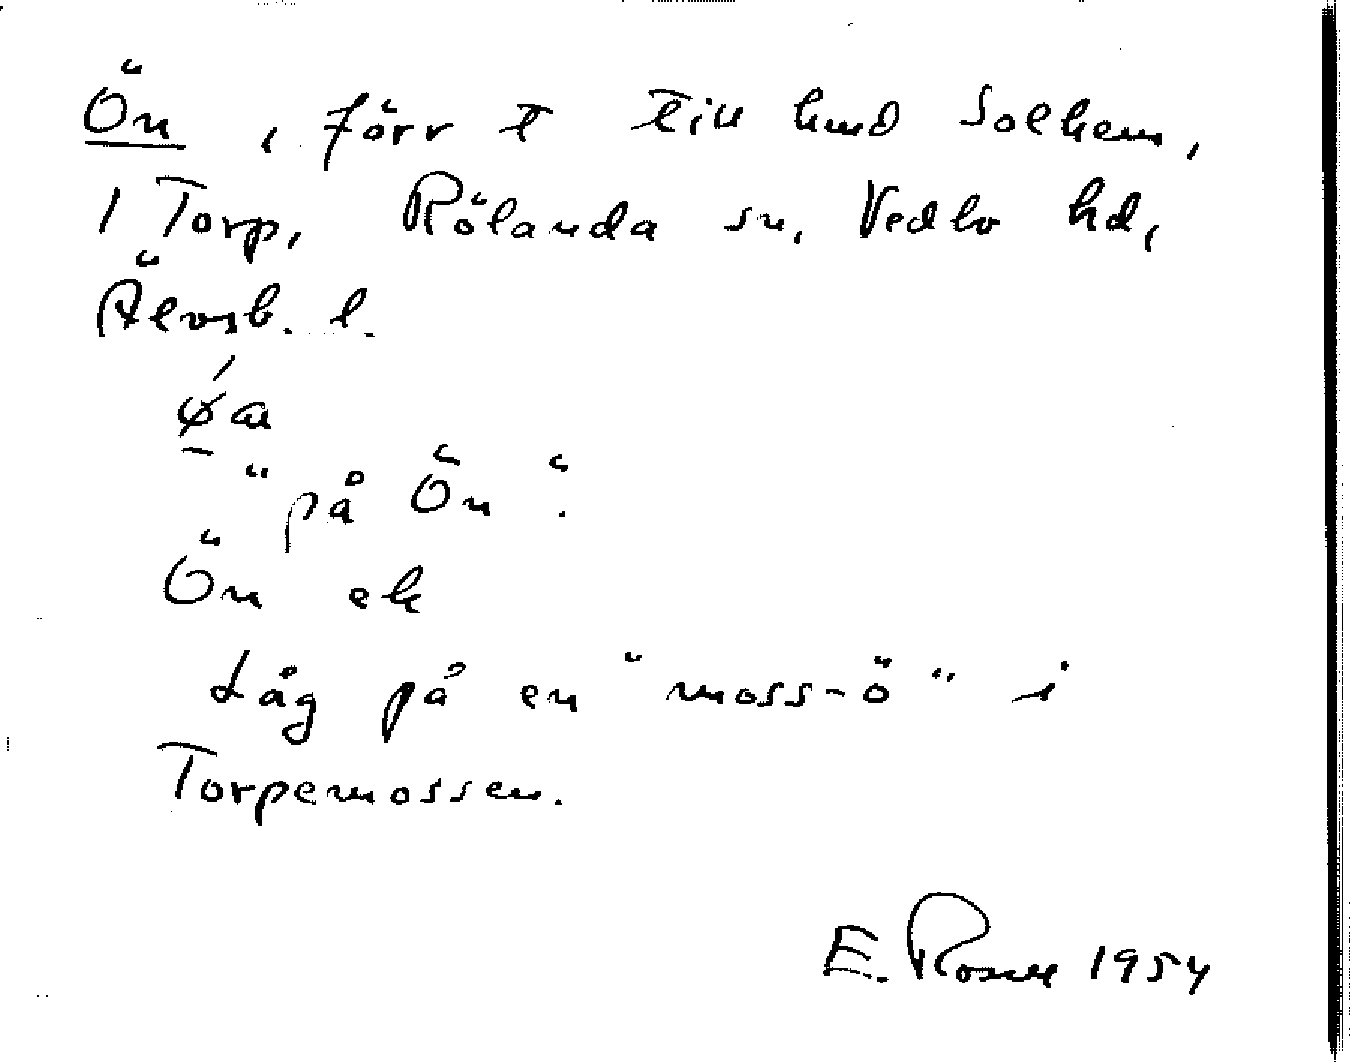 Ön, förr t till hmd Solhem,
1 Torp, Rölanda sn, Vedbo hd,
Älvsb. l.
"på Ön".
Ön ek
Låg på en "moss-ö" i
Torpemossen.
E. Rosell 1954